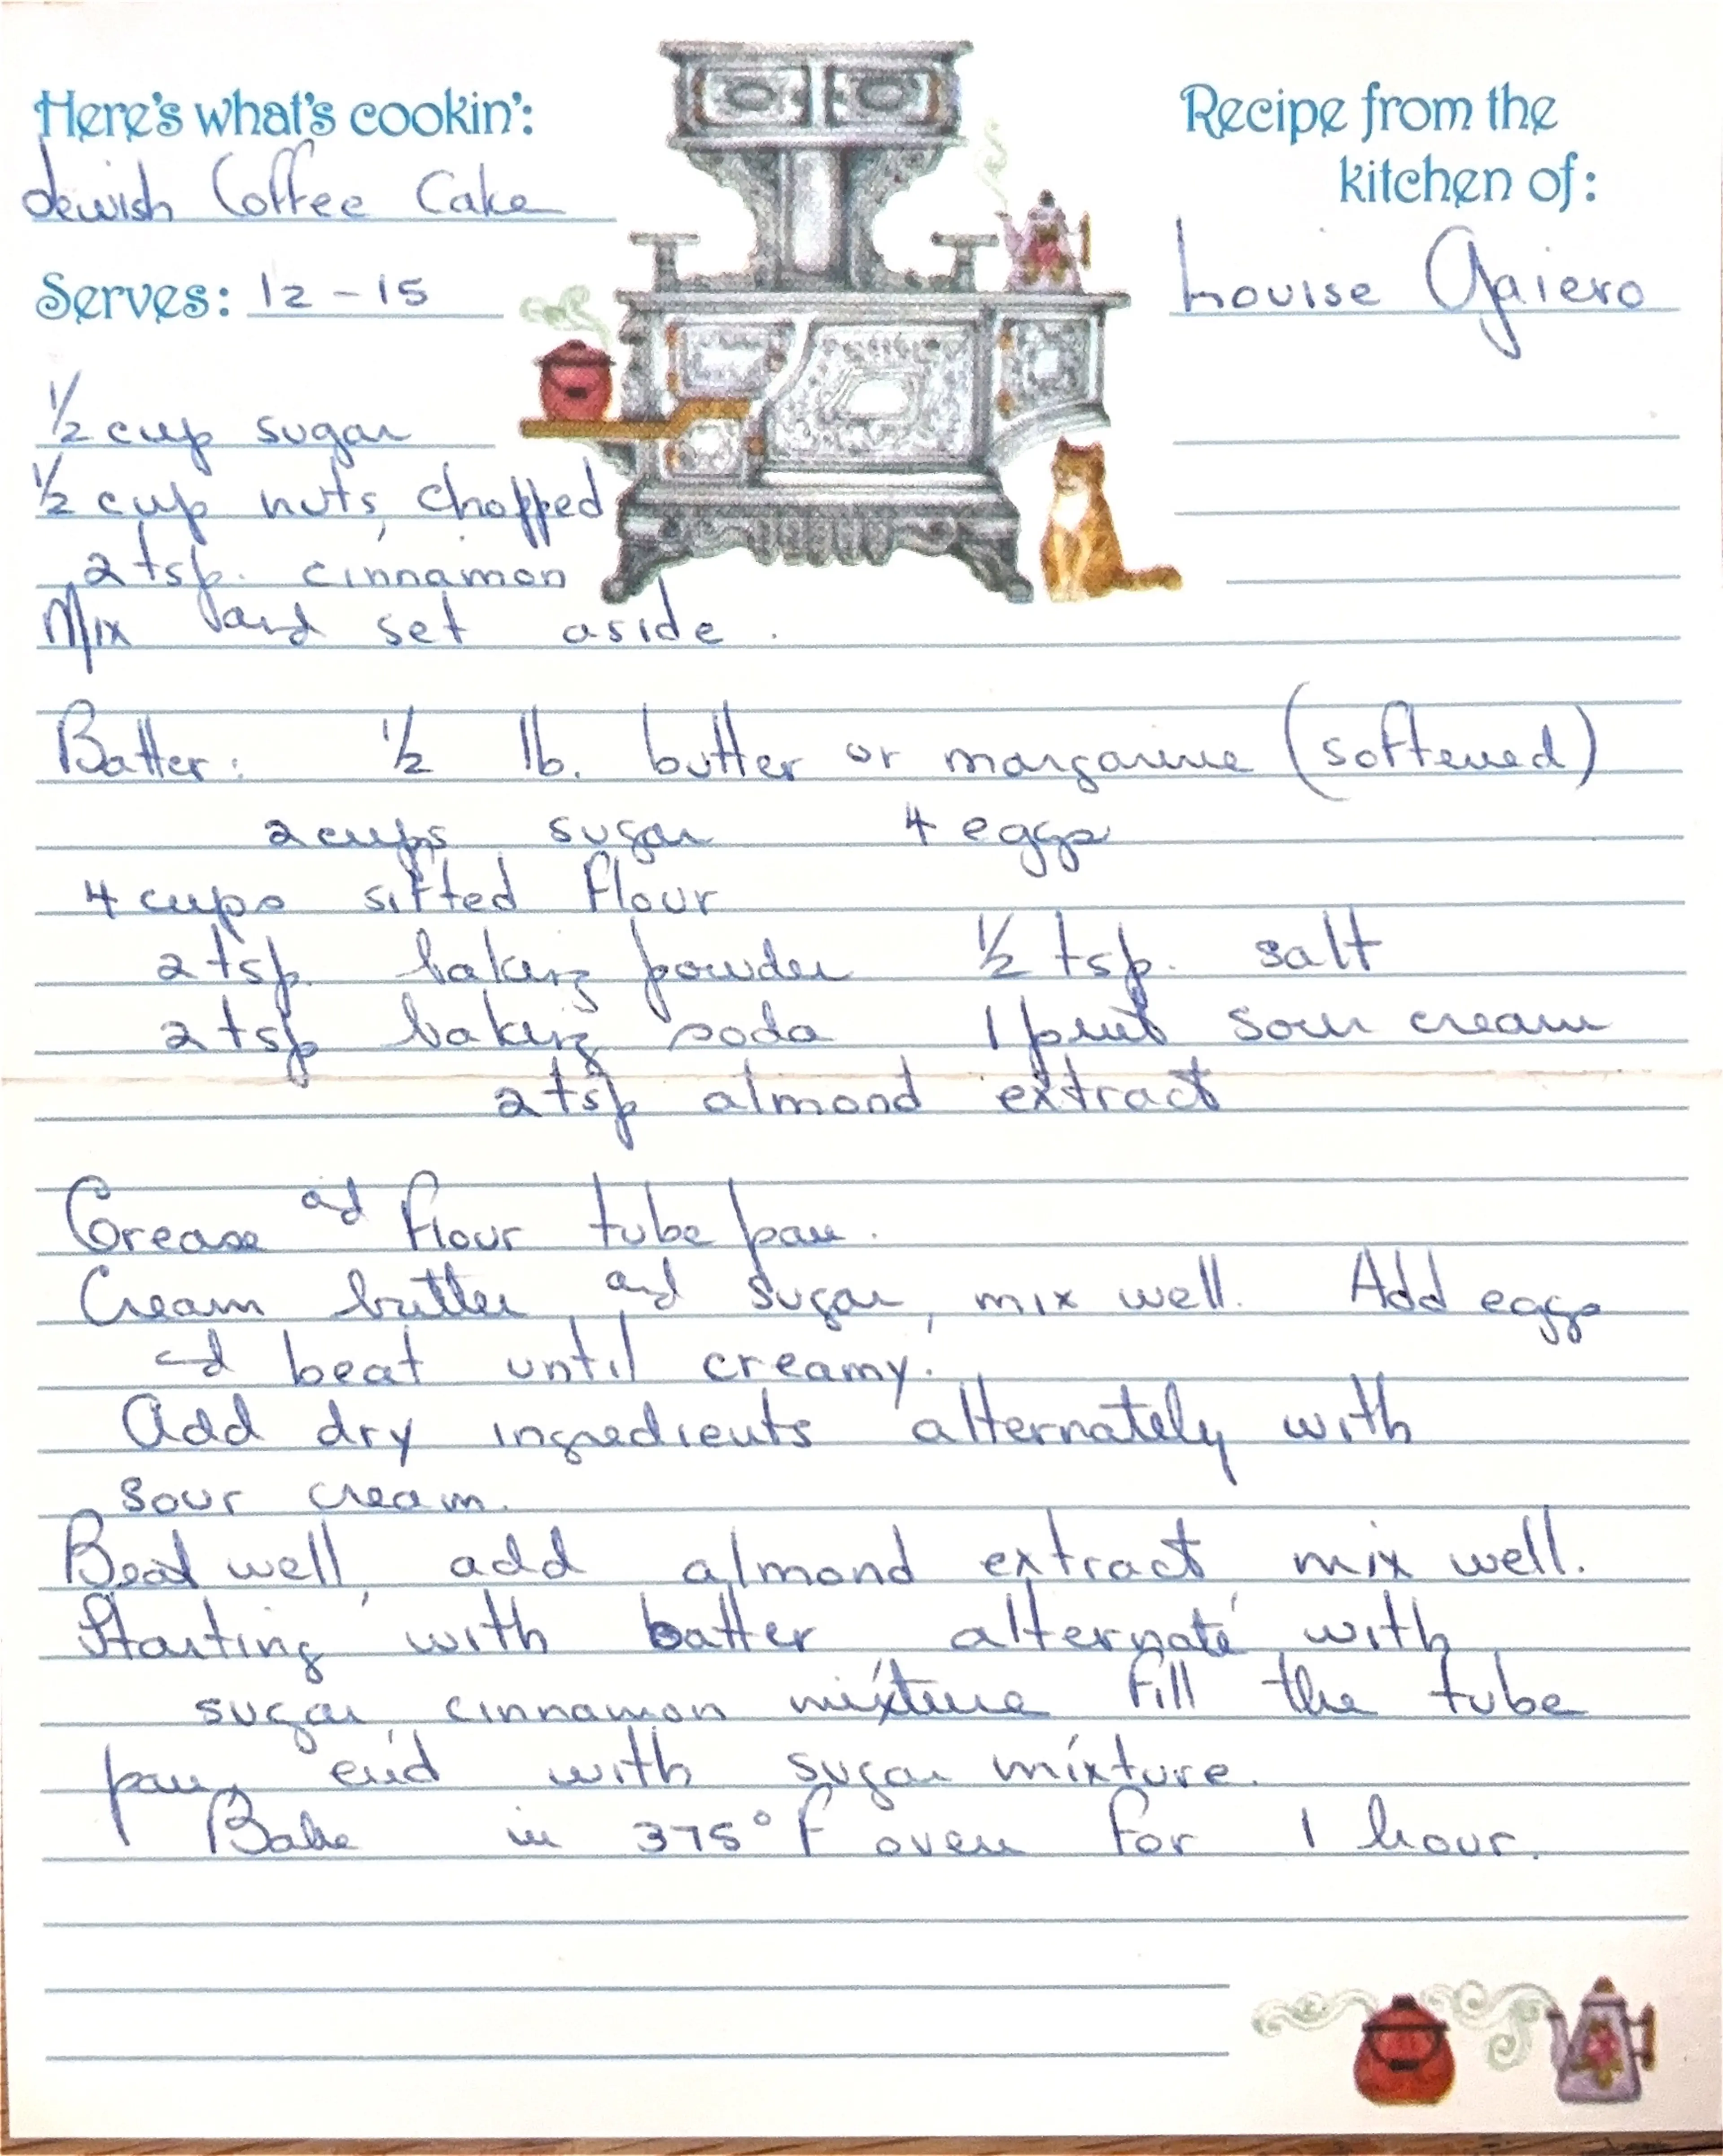 Here's what's cookin':
Jewish Coffee Cake
Serves: 12-15
Recipe from the
kitchen of:
Louise Gaiero
1/2 cup sugar
1/2 cup nuts, chopped
2 tsp. cinnamon
Mix and set aside.
Batter: 1/2 lb. butter or margarine (softened)
2 cups sugar 4 eggs
4 cups sifted flour
2 tsp. baking powder 1/2 tsp. salt
2 tsp baking soda 1 pint sour cream
2 tsp almond extract
Grease and flour tube pan.
Cream butter and sugar, mix well. Add eggs
and beat until creamy.
Add dry ingredients alternately with
sour cream.
Beat well, add almond extract mix well.
Starting with batter alternate with
sugar, cinnamon mixture fill the tube
pan, end with sugar mixture.
Bake in 375°F oven for 1 hour.